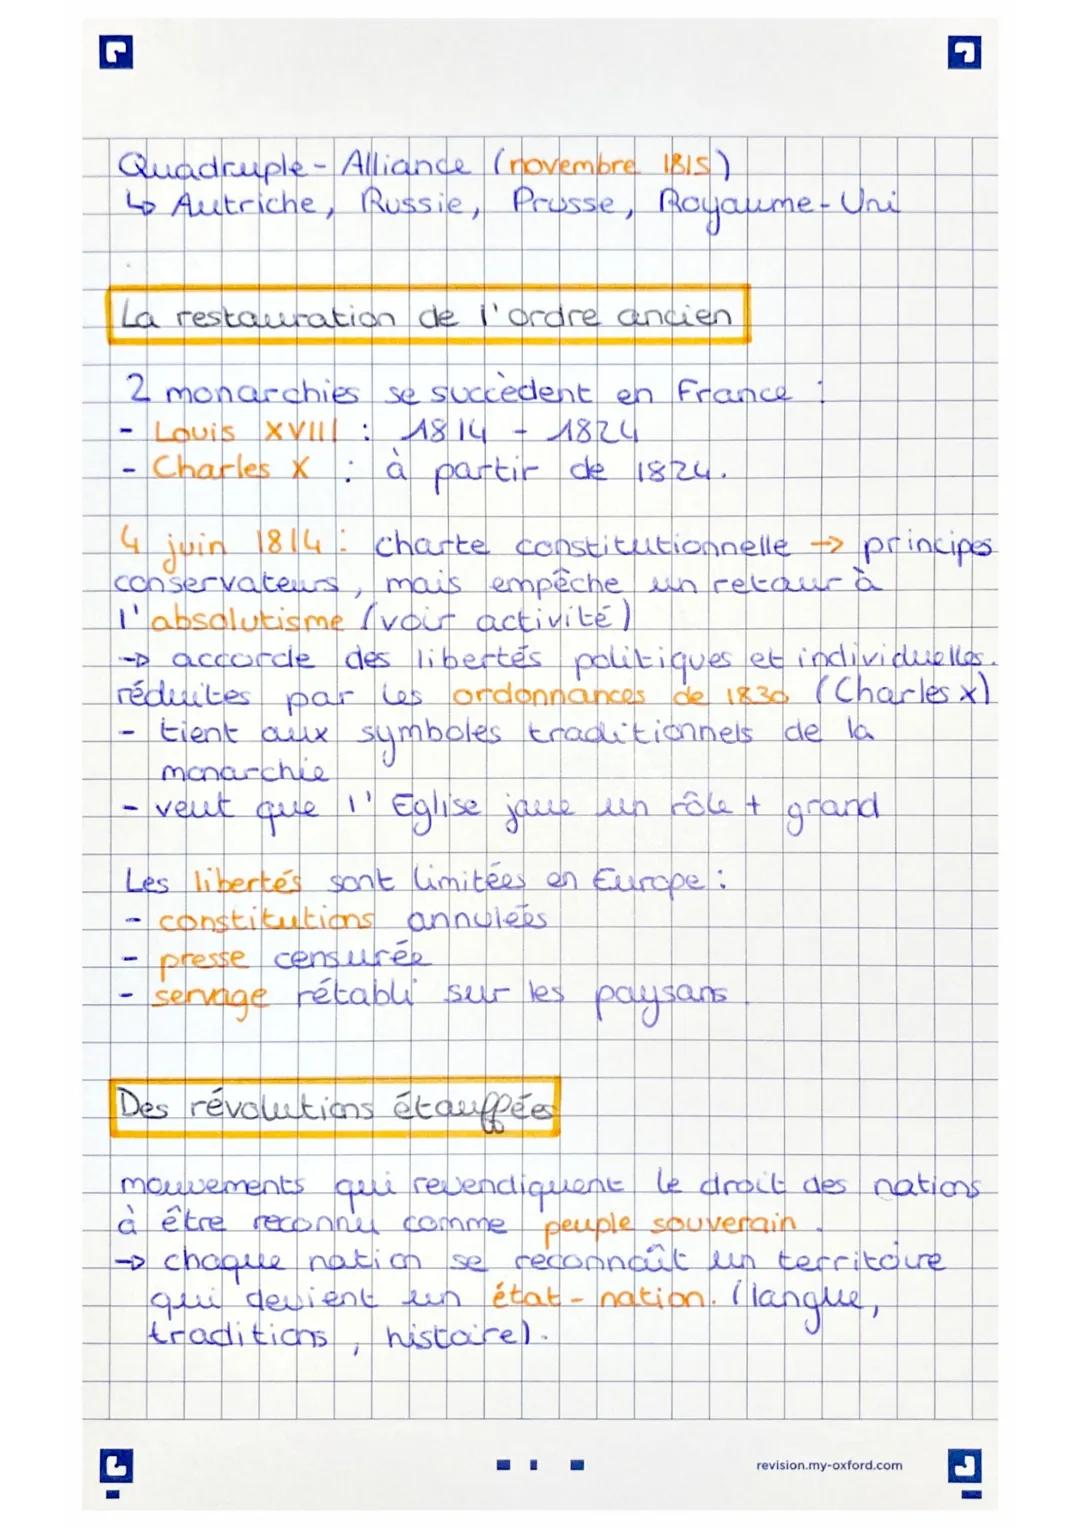 Quadruple-Alliance (novembre 1815)
↳ Autriche, Russie, Prusse, Royaume-Uni
La restauration de l'ordre ancien
2 monarchies se succèdent en France :
- Louis XVIII : 1814 - 1824
- Charles X : à partir de 1824.
4 juin 1814 : charte constitutionnelle → principes
conservateurs, mais empêche un retour à
l'absolutisme (voir activité)
→ accorde des libertés politiques et individuelles.
réduites par les ordonnances de 1830 (Charles X)
- tient aux symboles traditionnels de la
monarchie
- veut que l'Eglise joue un rôle + grand
Les libertés sont limitées en Europe :
- constitutions annulées
- presse censurée
- servage rétabli sur les paysans.
Des révolutions étouffées
mouvements qui revendiquent le droit des nations
à être reconnu comme peuple souverain.
→ chaque nation se reconnaît un territoire
qui devient un état-nation. (langue,
traditions, histoire).
revision.my-oxford.com